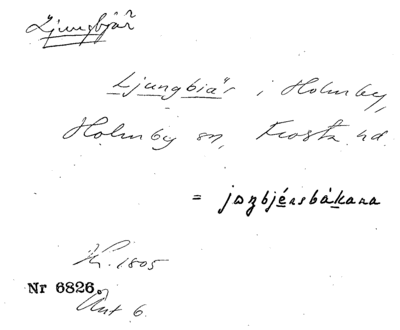 Ljungbjär
Ljungbiär i Holmby,
Holmby sn, Frosta hd.
= jɒŋbjérsbàkana
K. 1805
Nr 6826.
Ant 6.